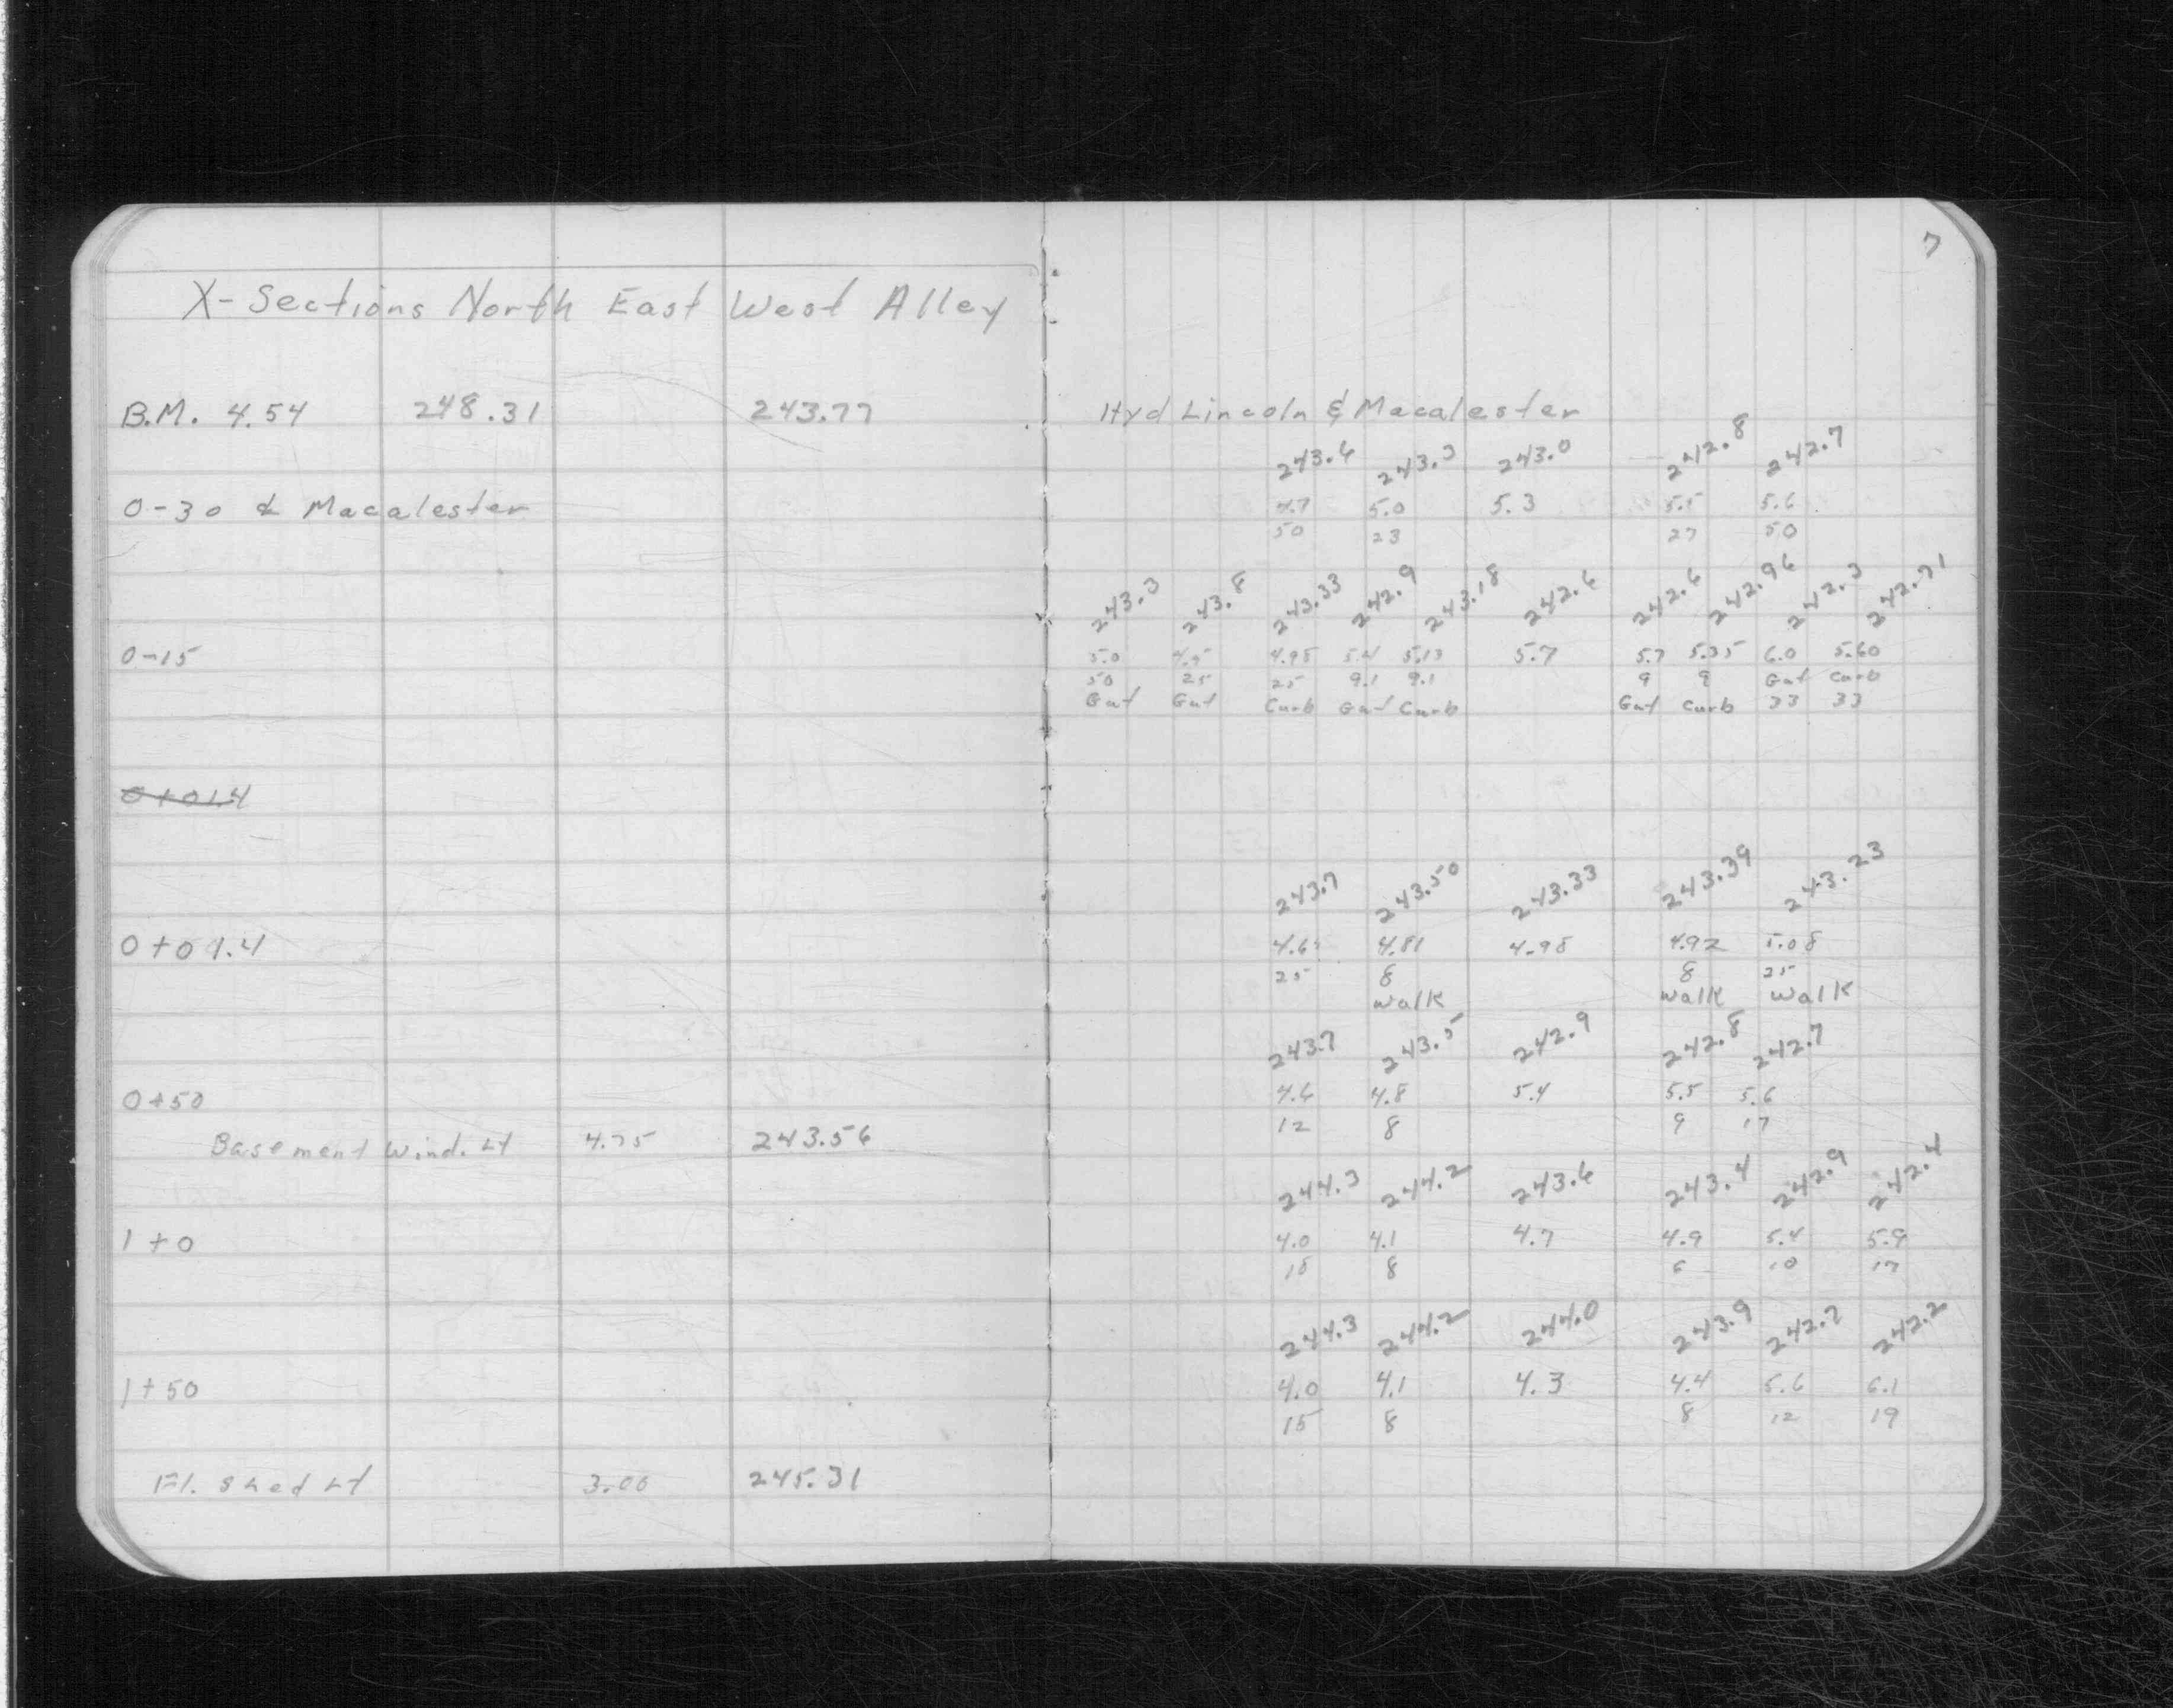 7
X-Sections North East West Alley
B.M. 4.54 248.31 243.77 Hyd Lincoln & Macalester
243.6 243.3 243.0 242.8 242.7
0-30 ℄ Macalester 4.7 5.0 5.3 5.5 5.6
50 23 27 50
243.3 243.8 243.33 242.9 243.18 242.6 242.6 242.96 242.3 242.71
0-15 5.0 4.5 4.98 5.4 5.13 5.7 5.7 5.35 6.0 5.60
50 25 25 9.1 9.1 9 9 Gut Curb
Gut Gut Curb Gut Curb Gut Curb 33 33
0+01.4
243.7 243.50 243.33 243.39 243.23
0+01.4 4.6 4.81 4.98 4.92 5.08
25 8 8 25
Walk Walk Walk
243.7 243.5 242.9 242.8 242.7
0+50 4.6 4.8 5.4 5.5 5.6
12 8 9 17
Basement Wind. Lt 4.75 243.56
244.3 244.2 243.6 243.4 242.9 242.4
1+0 4.0 4.1 4.7 4.9 5.4 5.9
15 8 6 10 17
244.3 244.2 244.0 243.9 242.7 242.2
1+50 4.0 4.1 4.3 4.4 5.6 6.1
15 8 8 12 19
Fl. Shed Lt 3.00 245.31